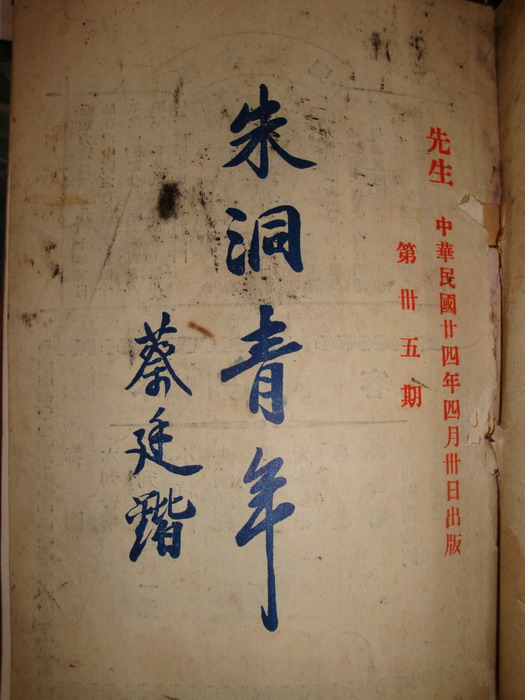 先生
中華民國廿四年四月卅日出版
第卅五期
朱洞青年
蔡廷鍇